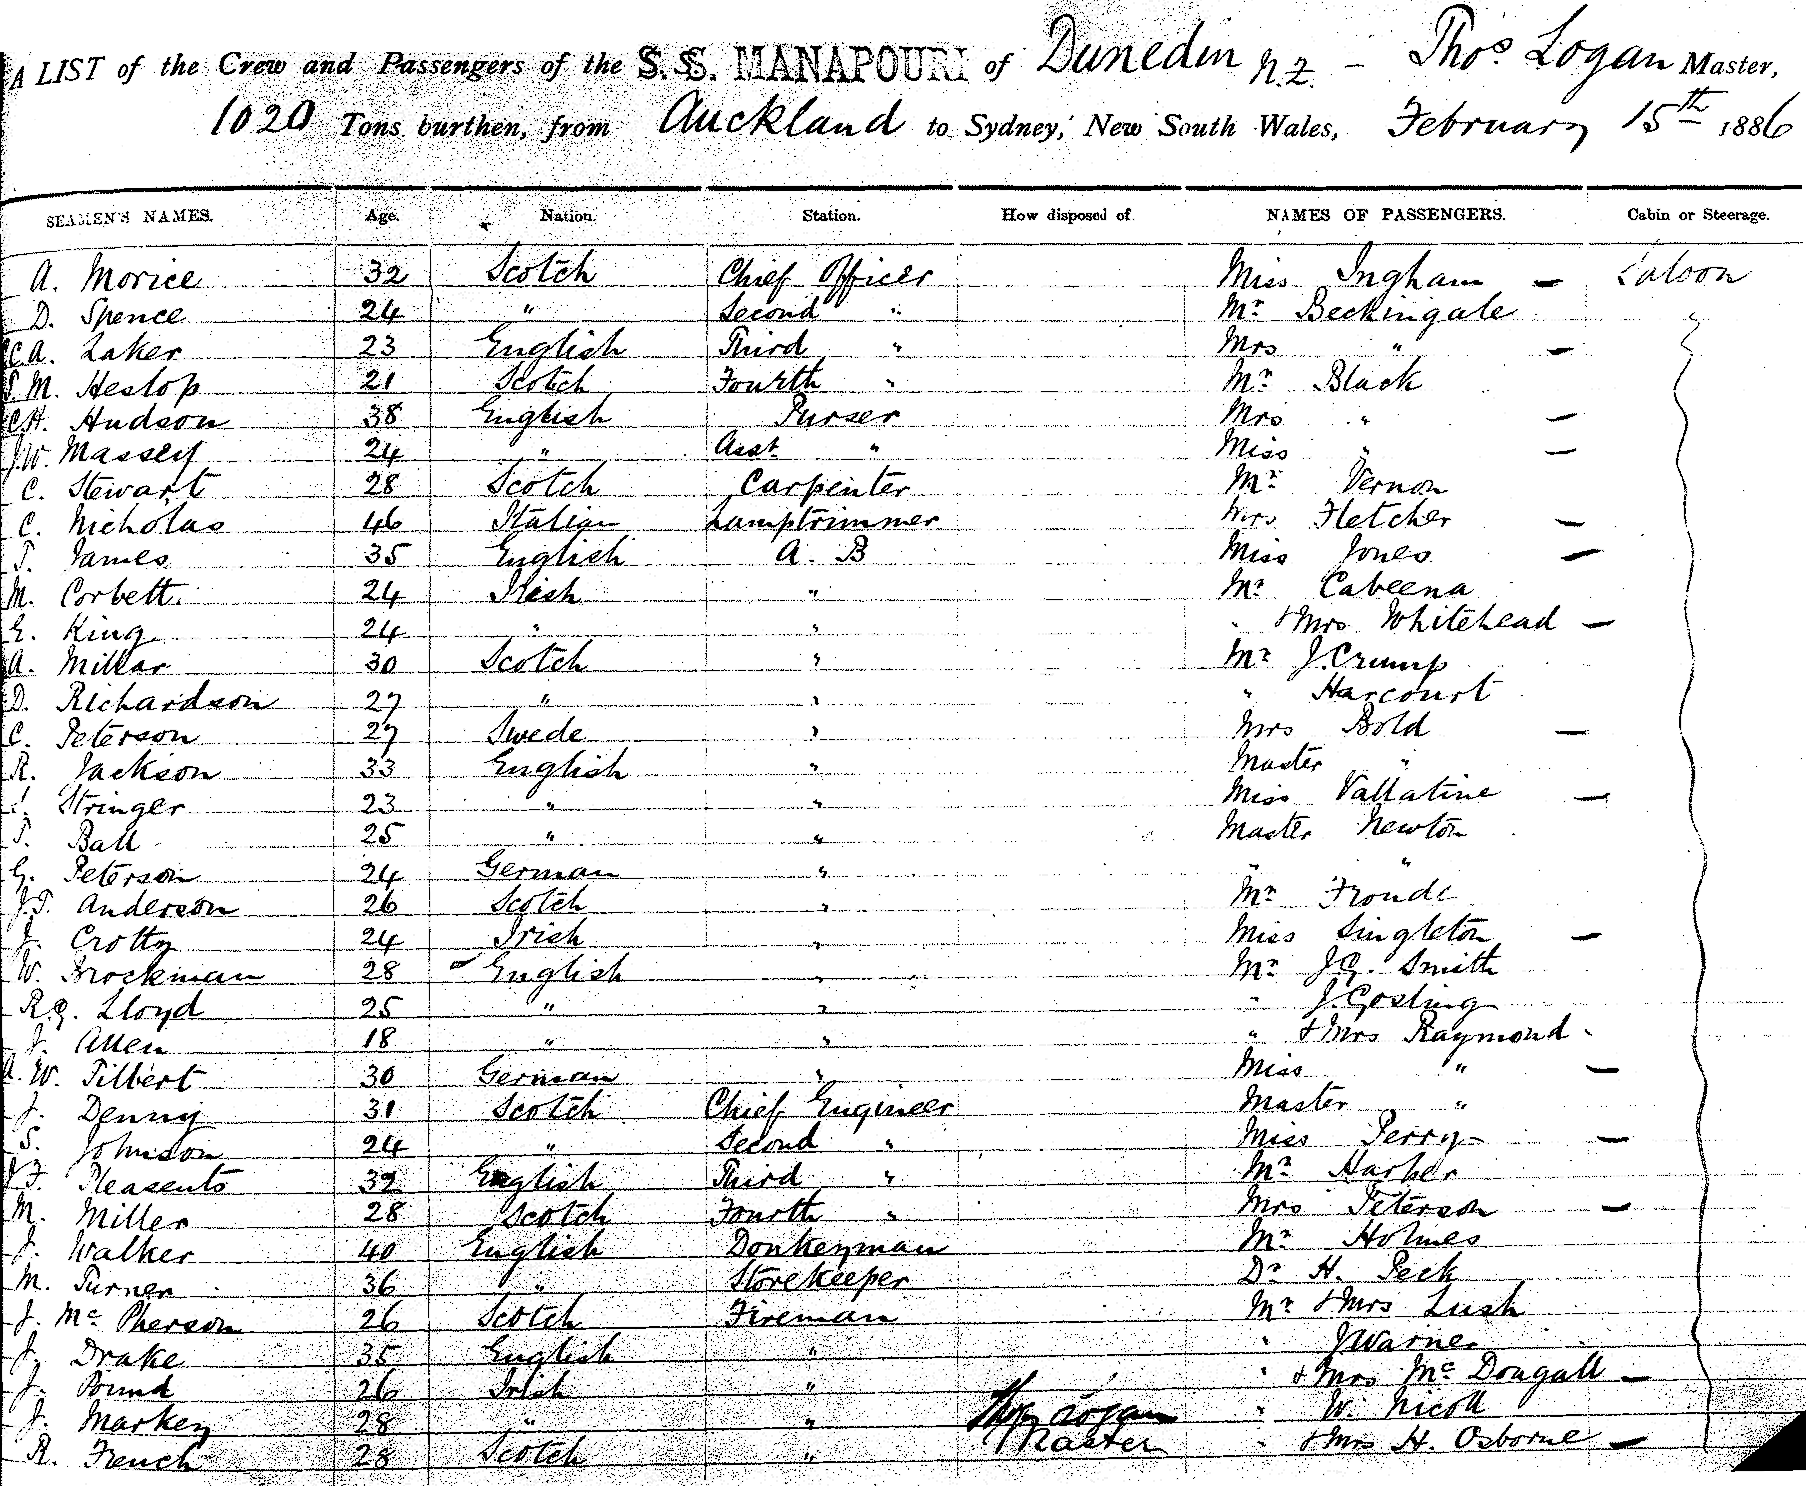 A LIST of the Crew and Passengers of the S.S. MANAPOURI of Dunedin N.Z. - Thos Logan Master,
1020 Tons burthen, from Auckland to Sydney, New South Wales, February 15th 1886
SEAMEN'S NAMES. Age. Nation. Station. How disposed of NAMES OF PASSENGERS. Cabin or Steerage.
A. Morice 32 Scotch Chief Officer Miss Ingham - Saloon
D. Spence 24 " Second " Mr Beckingale "
C.A. Laker 23 English Third " Mrs " -
M. Heslop 21 Scotch Fourth " Mr Black
C.H. Hudson 38 English Purser Mrs " -
J.W. Massey 24 " Asst " Miss " -
C. Stewart 28 Scotch Carpenter Mr Vernon
C. Nicholas 46 Italian Lamptrimmer Mrs Fletcher -
T. James 35 English A. B Miss Jones -
M. Corbett 24 Irish " Mr Cabeena
E. King 24 " " " & Mrs Whitehead -
A. Millar 30 Scotch " Mr J. Crump
D. Richardson 27 " " " Harcourt
C. Peterson 27 Swede " Mrs Bold -
R. Jackson 33 English " Master "
Stringer 23 " " Miss Vallatine -
T. Ball 25 " " Master Newton
G. Peterson 24 German " " "
J.T. Anderson 26 Scotch " Mr Froude
J. Crotty 24 Irish " Miss Singleton -
W. Brockman 28 English " Mr J.G. Smith
R.G. Lloyd 25 " " " J. Gosling
J. Allen 18 " " " & Mrs Raymond -
A. W. Tilbert 30 German " Miss " -
J. Denny 31 Scotch Chief Engineer Master "
S. Johnson 24 " Second " Miss Perry -
J.F. Pleasents 32 English Third " Mr Harber
M. Miller 28 Scotch Fourth " Mrs Peterson -
J. Walker 40 English Donkeyman Mr Holmes
M. Turner 36 " Storekeeper Dr H. Peck
J. McPherson 26 Scotch Fireman Mr & Mrs Lush
J. Drake 35 English " " J Warner
J. Pound 26 Irish " " & Mrs McDougall -
J. Markey 28 " " Thos Logan " W. Nicoll
R. French 28 Scotch " Master " & Mrs H. Osborne -